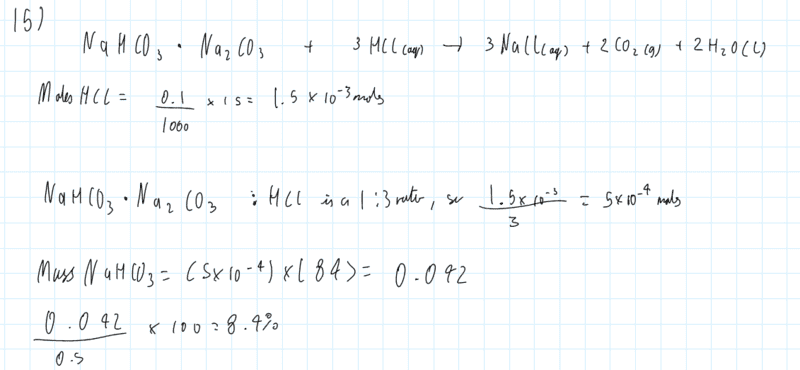 15)
NaHCO₃ · Na₂CO₃ + 3HCl(aq) → 3NaCl(aq) + 2CO₂(g) + 2H₂O(l)
Moles HCl = 0.1/1000 × 15 = 1.5 × 10⁻³ mols
NaHCO₃ · Na₂CO₃ : HCl is a 1:3 ratio, so 1.5×10⁻³/3 = 5×10⁻⁴ mols
Mass NaHCO₃ = (5×10⁻⁴) × (84) = 0.042
0.042/0.5 × 100 = 8.4%